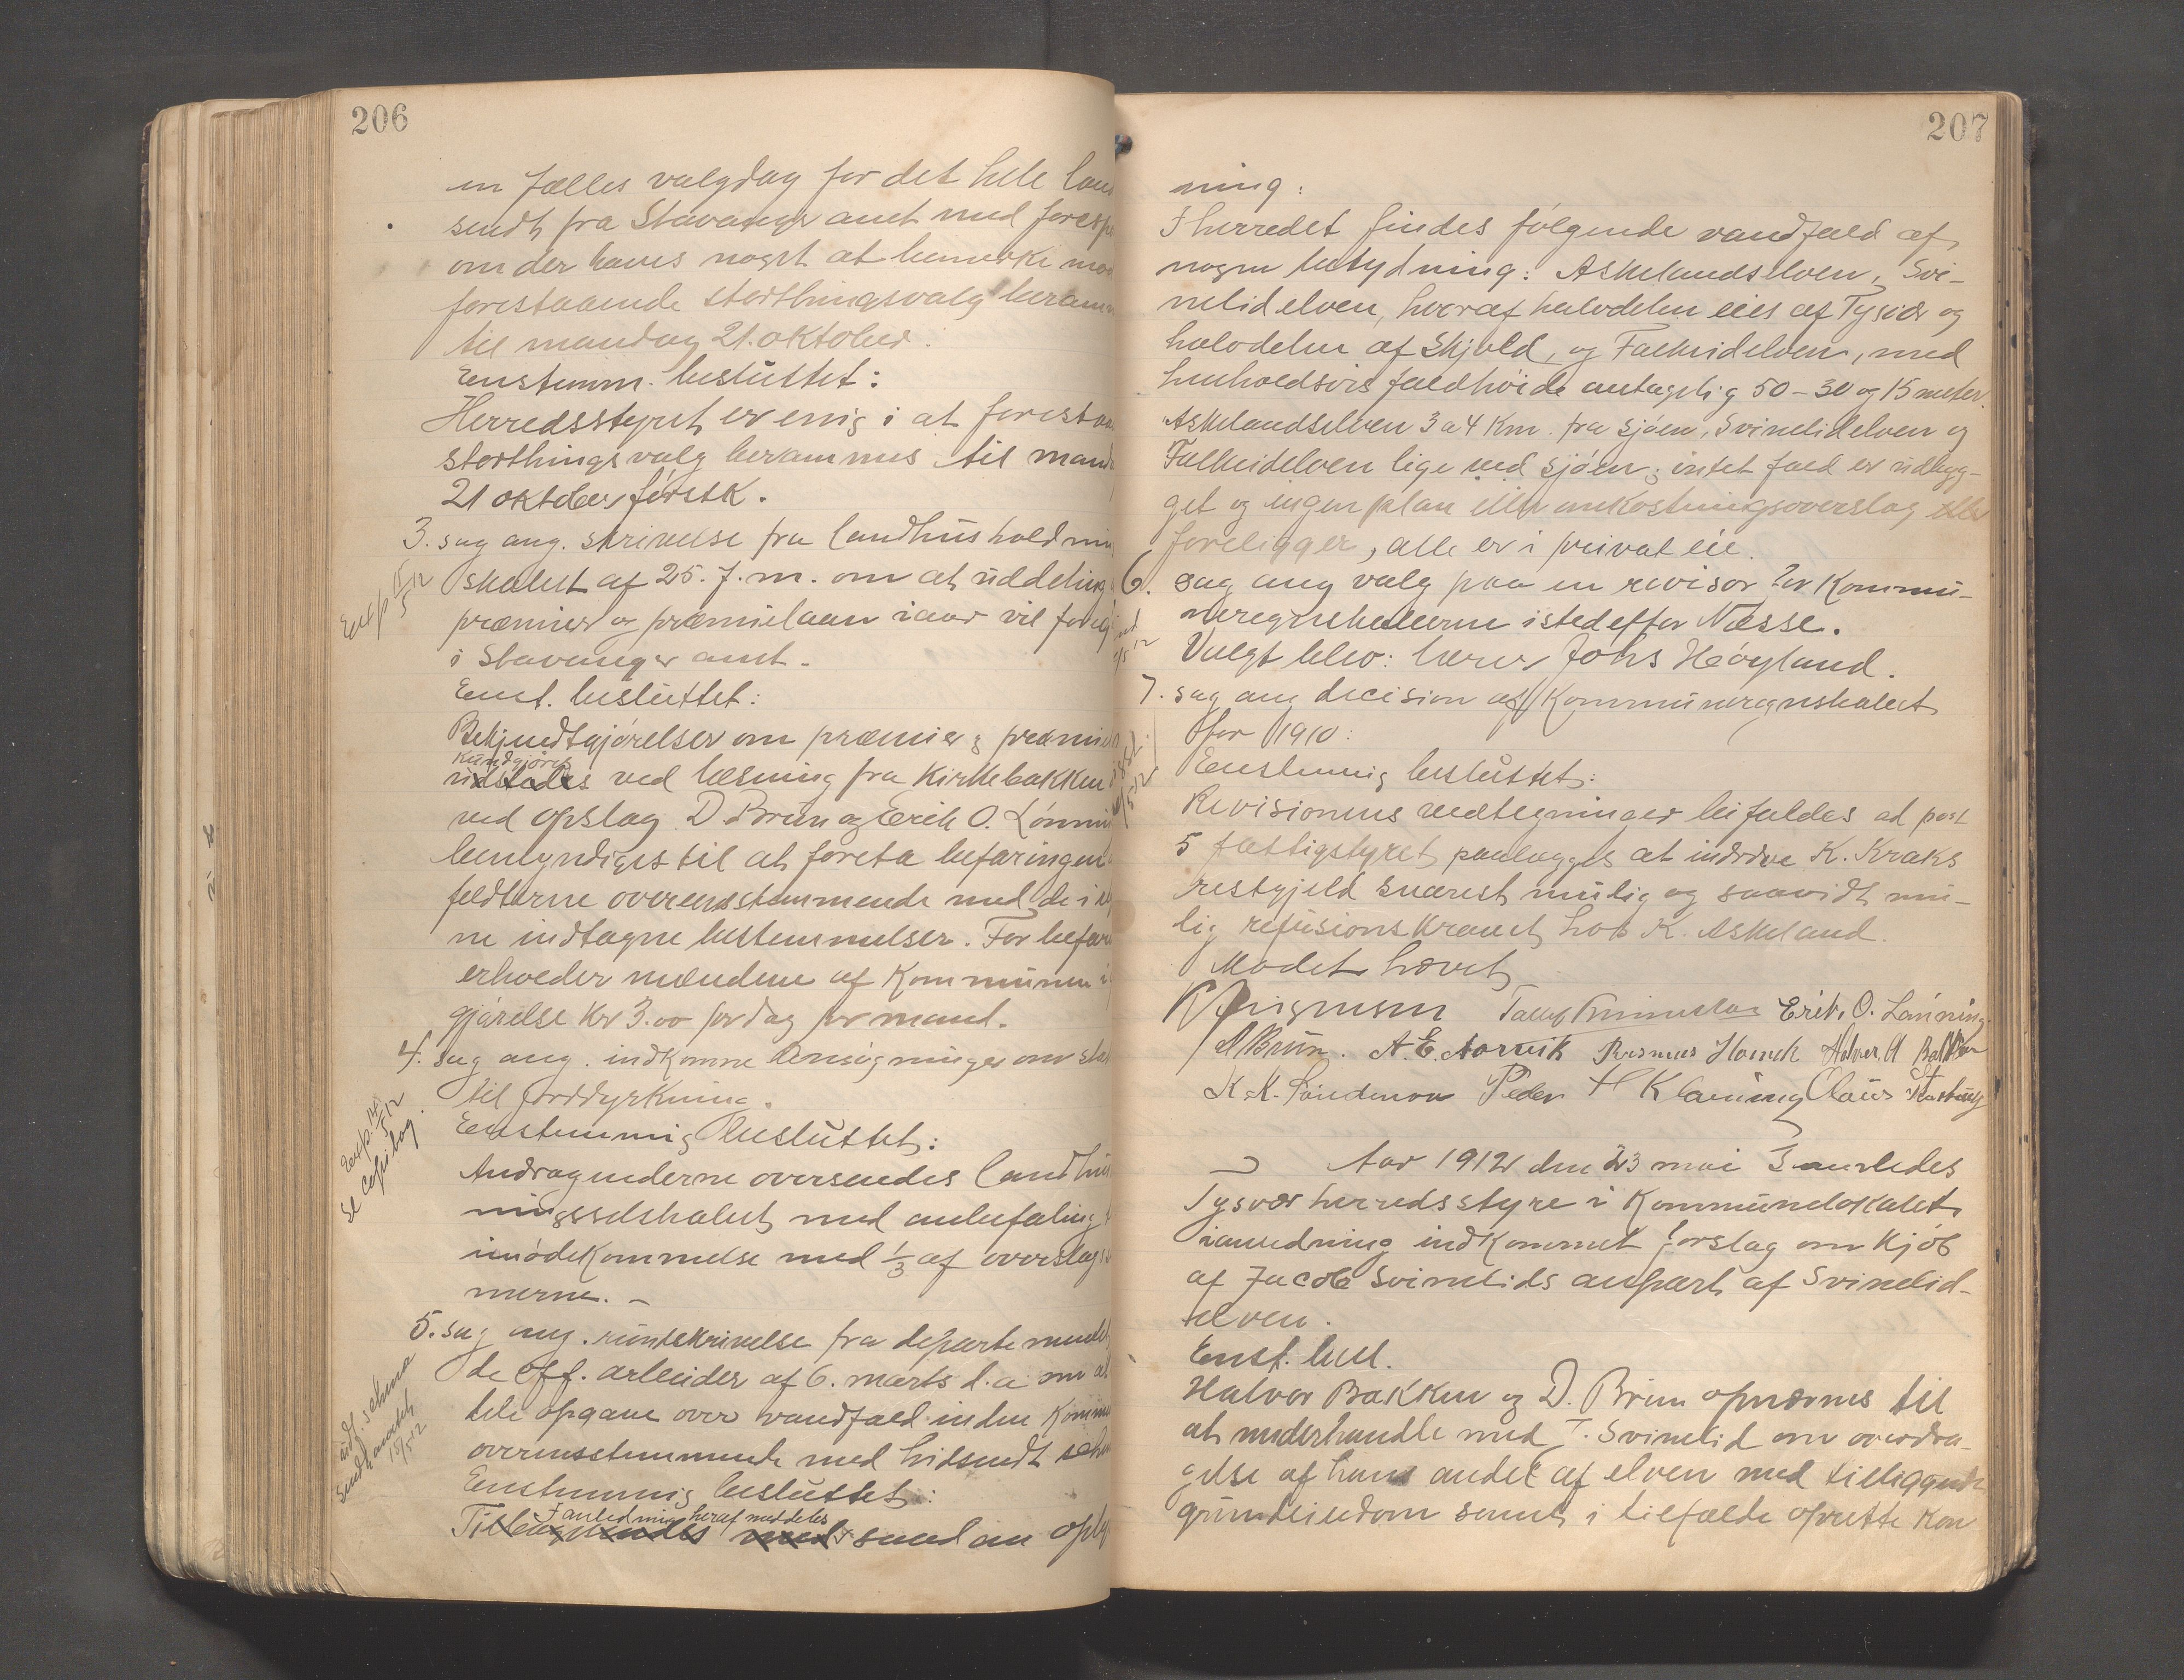 206
en fælles valgdag for det hele lan
sendt fra Stavanger amt med foresp
om der haves noget at bemerke mod
forestaaende storthingsvalg beram
til mandag 21. oktober.
Enstemm. besluttet:
Herredsstyret er enig i at forestaa
storthingsvalg berammes til mand
21 oktober førstk.
3. sag ang. skrivelse fra landhushold nin
Exp 15/5 12
skabet af 25. f. m. om at uddeling
præmier og præmielaan iaar vil foregå
i Stavanger amt.
Enst. besluttet:
Bekjendtgjørelser om præmier & præmiel
kundgjøres
udstedes ved læsning fra Kirkebakken
ved opslag. D. Brun og Erik O. Lønnin
bemyndiges til at foreta befaringen
feldterne overensstemmende med de i
ne indtagne bestemmelser. For befar
erholder mændene af Kommunen
gjørelse Kr 3.00 for dag per mand.
4. sag ang. indkomne Ansøgninger om
til jorddyrkning.
Exp. 14/5 12
Se Copibog.
Enstemmig Besluttet:
Andragenderne oversendes landhus
ningsselskabet med anbefaling
imødekommelse med 1/3 af overslags
merne. –
5. sag ang. rundskrivelse fra departementet
de off. arbeider af 6. marts d. a. om at
udf. schema
Sendt amtet
15/5 12
dele opgave over vandfald inden Kommu
overensstemmende med hidsendt schem
Enstemmig besluttet:
I anledning heraf meddeles
Tilbagesendes med saadan oply
207
ning:
I herredet findes følgende vandfald af
nogen betydning: Askelandselven, Svi-
nelidelven, hvoraf halvdelen eies af Tysvær og
halvdelen af Skjold, og Falkeidelven, med
henholdsvis faldhøide antagelig 50 – 30 og 15 meter.
Askelandselven 3 a 4 Km. fra sjøen, Svinelidelven og
Falkeidelven lige ved sjøen; intet fald er udbyg-
get og ingen plan eller omkostningsoverslag
foreligger, alle er i privat eie.
6. sag ang valg paa en revisor for Kommu-
neregnskaberne istedetfor Næsse.
Valgt blev: lærer Johs Høyland.
7. sag ang decision af Kommuneregnskabet
for 1910:
Enstemmig besluttet:
Revisionens vedtegninger bifaldes ad post
5 fattigstyret paalægges at inddrive K. Kraks
restgjeld snarest mulig og saavidt mu-
lig refusionskravet hos K. Askeland.
Mødet hævet
Erik. O. Lønning
D Brun. A. E. Aarvik Rasmus Hauch Halvor. A Bakken
K. K. Søndenaa Peder H Klovning Claus Stakkestad
Aar 1912 den 23 mai Samledes
Tysvær herredsstyre i Kommunelokalet
i anledning indkommet forslag om kjøb
af Jacob Svinelids anpart af Svinelid-
elven.
Enst. besl.
Halvor Bakken og D. Brun opnævnes til
at underhandle med J. Svinelid om overdra-
gelse af hans andel af elven med tilliggende
grundeiendom samt i tilfælde oprette Kon